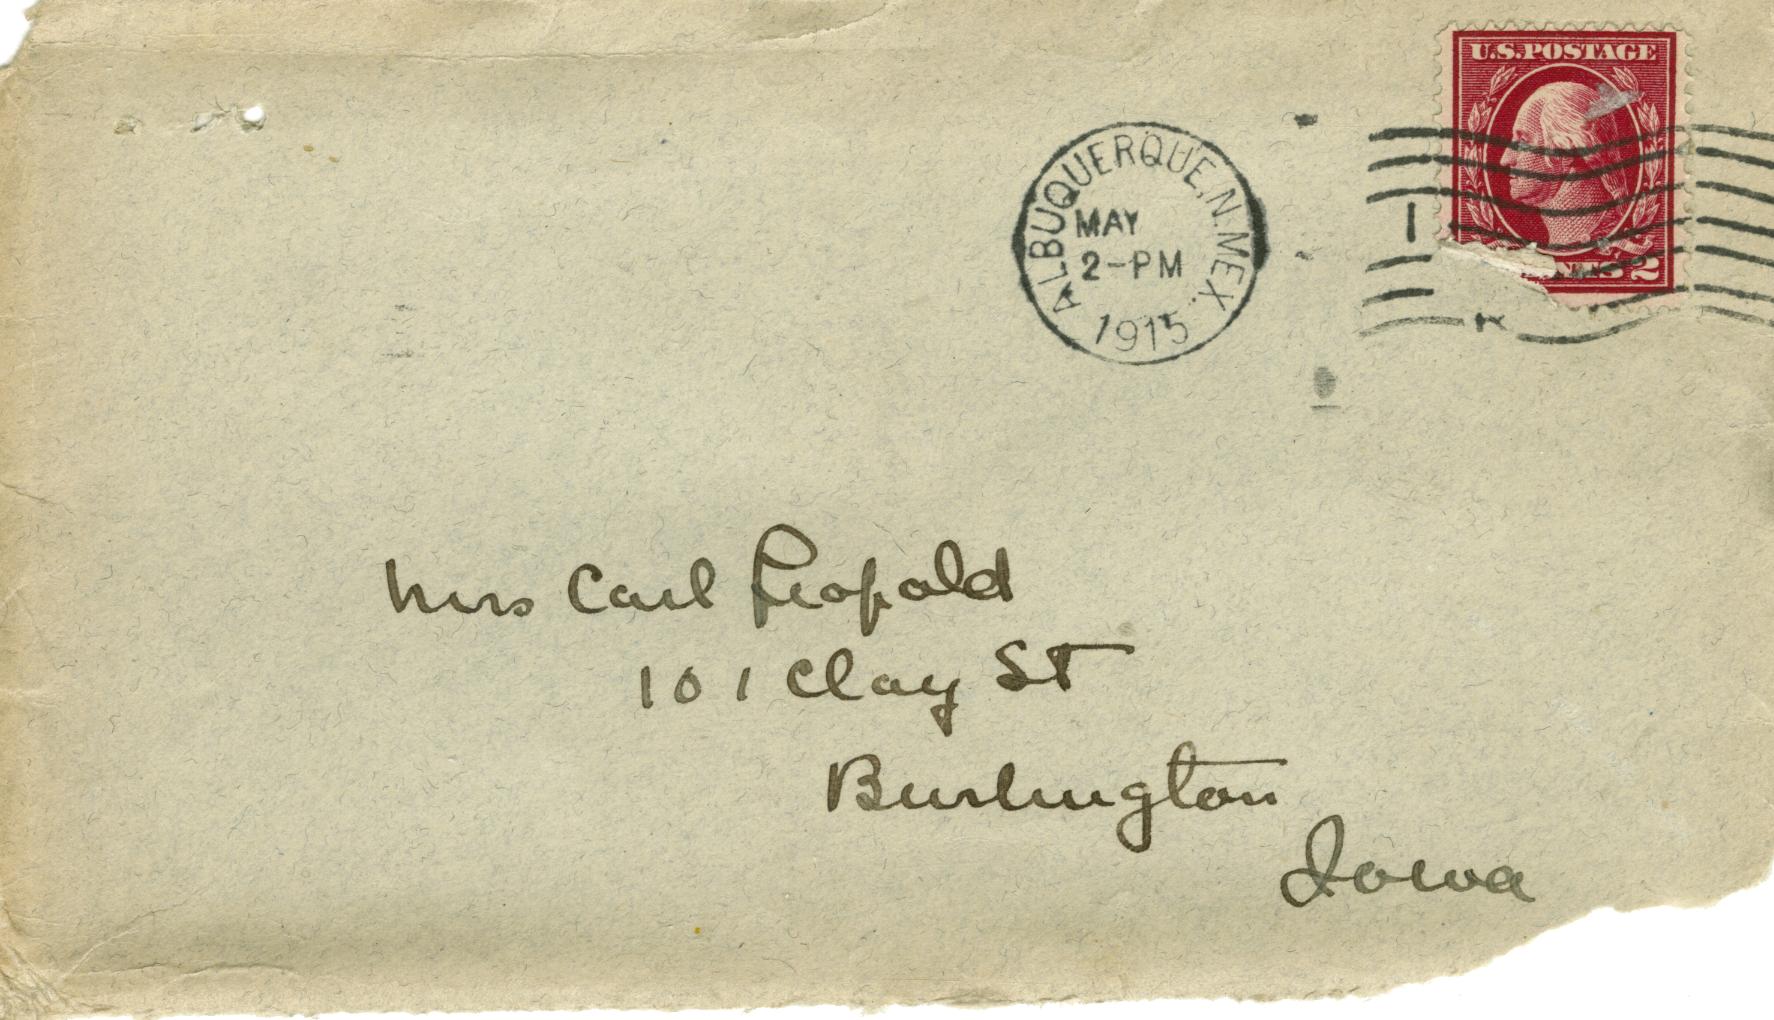 U.S.POSTAGE
ALBUQUERQUE, N. MEX.
MAY
2-PM
1915
1
NTS 2
Mrs Carl Leopold
101 Clay St
Burlington
Iowa